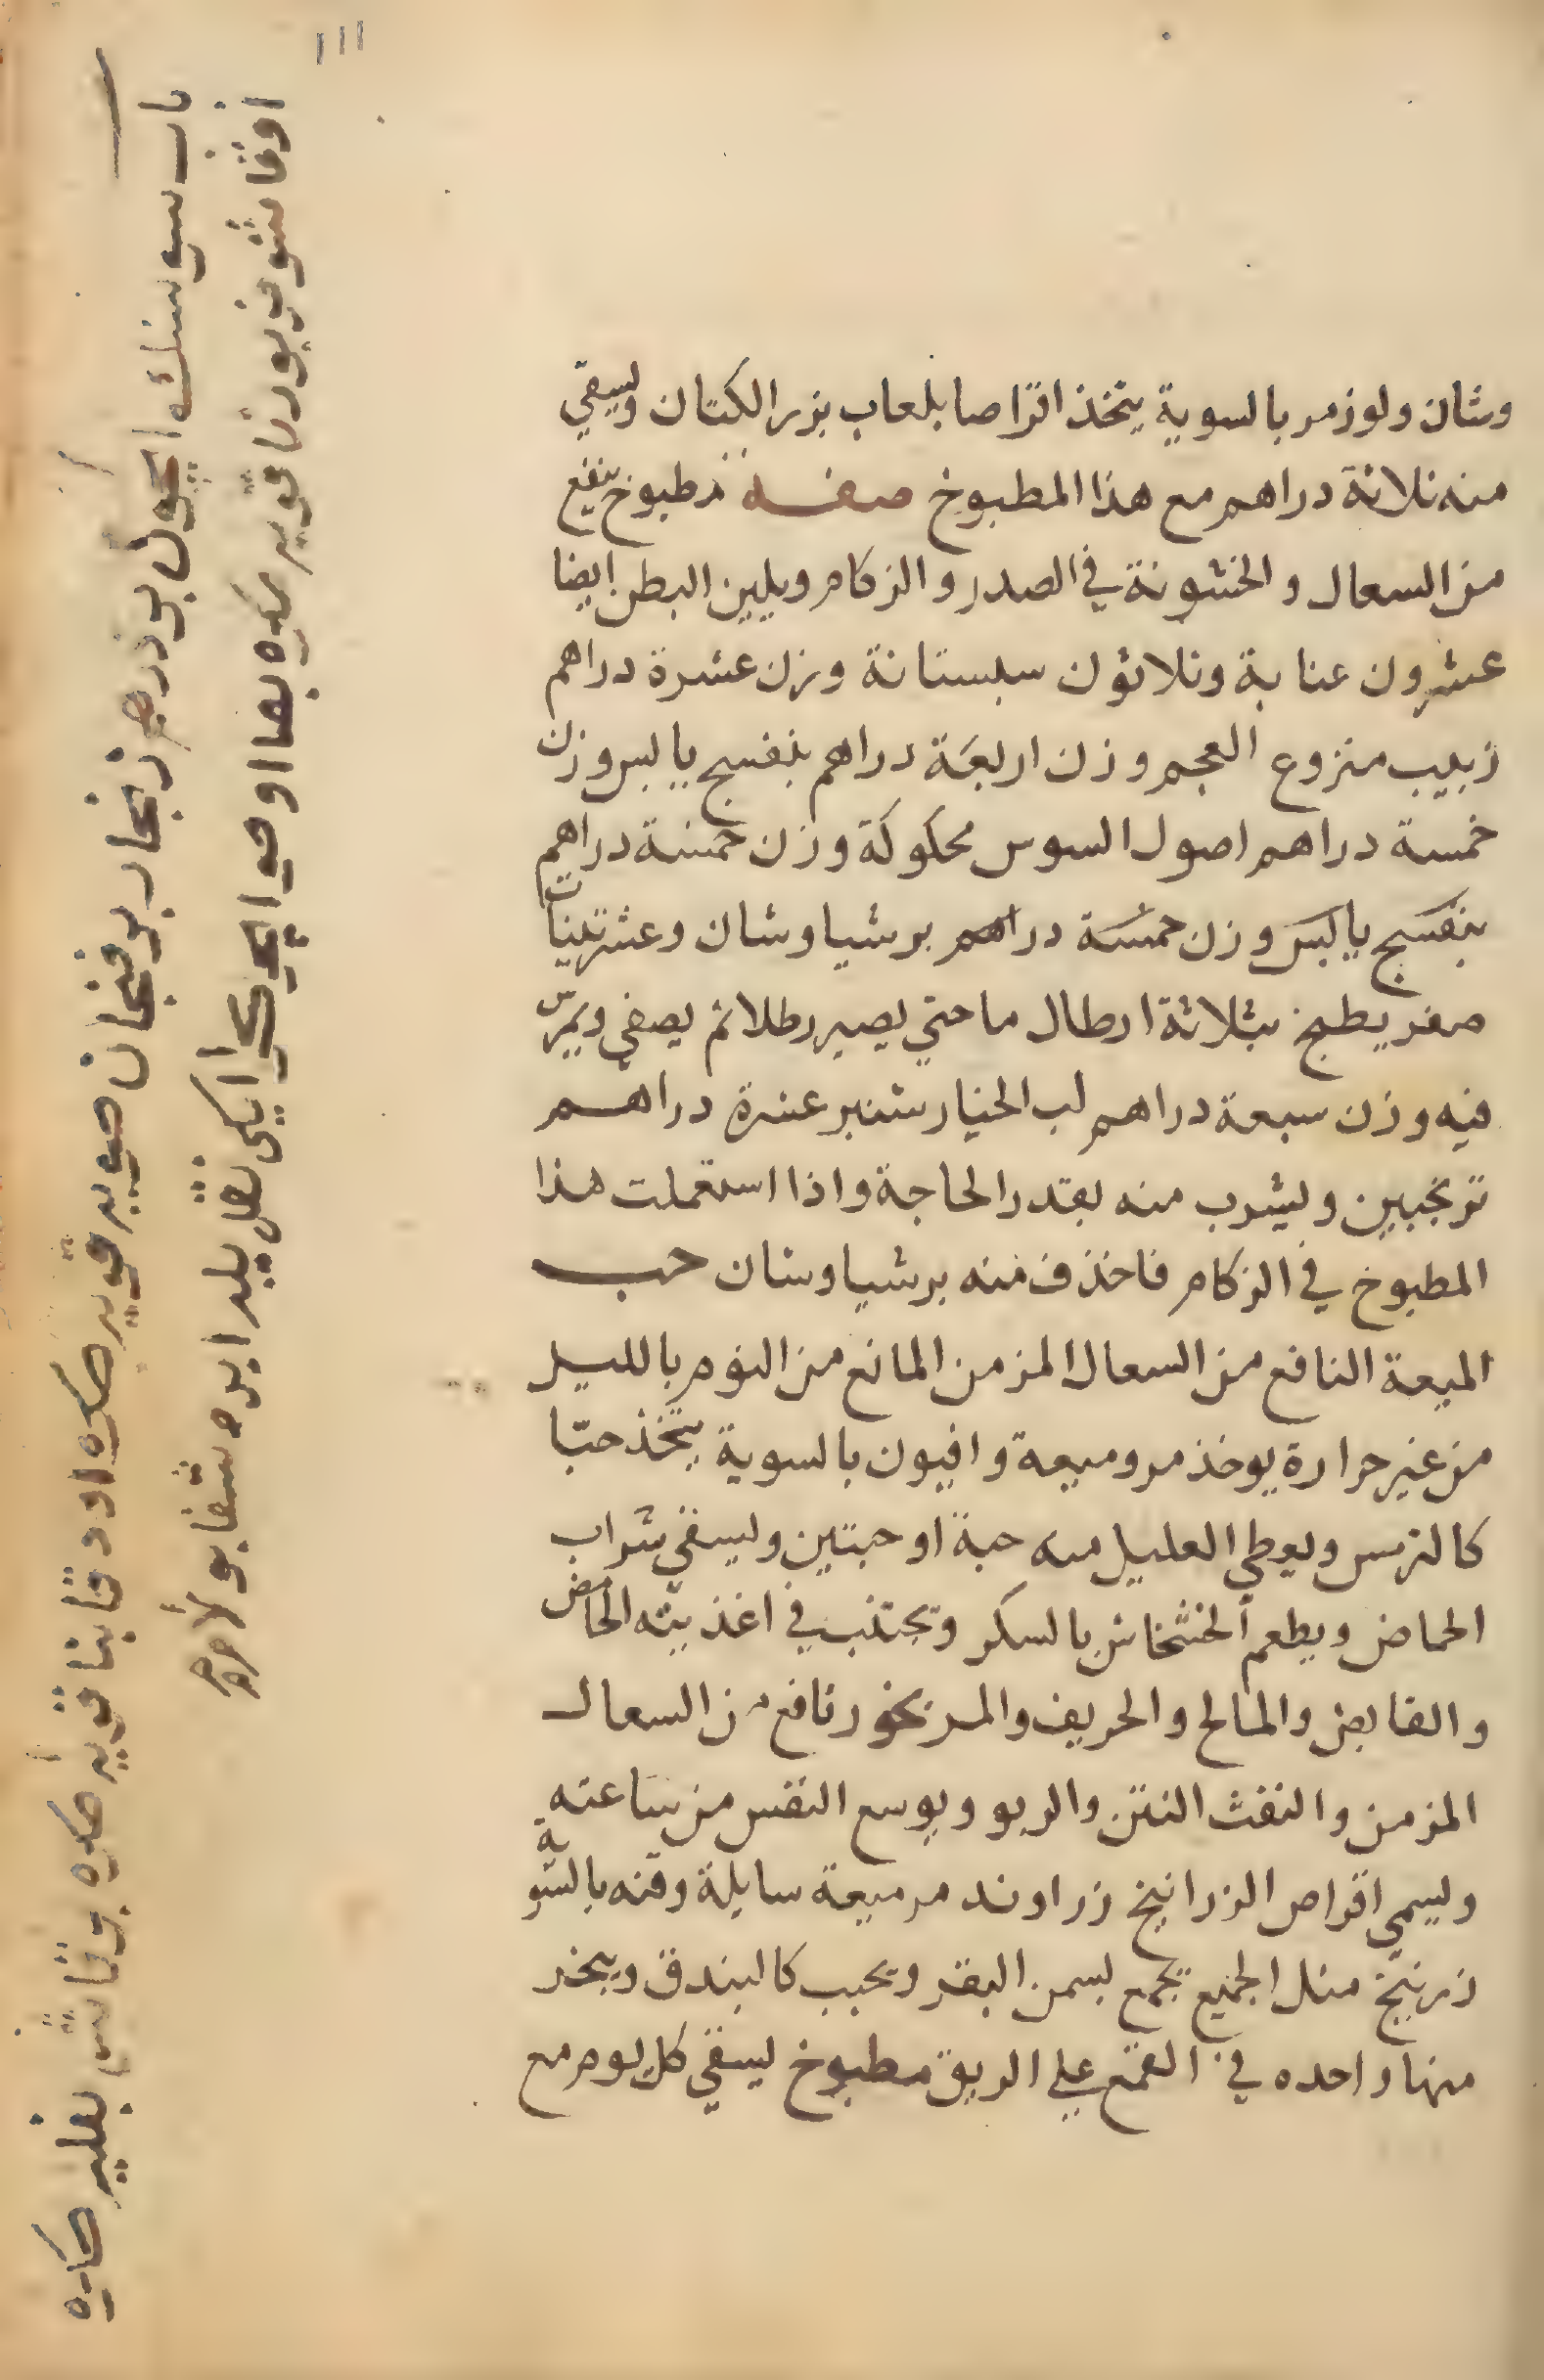 ١١١
وشان ولوز مر بالسوية يتخذ اقراصا بلعاب بزر الكتان ويسقي
منه ثلاثة دراهم مع هذا المطبوخ صفه مطبوخ ينفع
من السعال والخشونة في الصدر والزكام ويلين البطن ايضا
عشرون عنابة وثلاثون سبستانة وزن عشرة دراهم
زبيب منزوع العجم وزن اربعة دراهم بنفسج يابس وزن
خمسة دراهم اصول السوس محكوكة وزن خمسة دراهم
بنفسج يابس وزن خمسة دراهم برشياوشان وعشر تينات
صفر يطبخ بثلاثة ارطال ما حتي يصير رطلا ثم يصفي ويمرس
فيه وزن سبعة دراهم لب الخيار شنبر عشرة دراهم
ترنجبين ويشرب منه بقدر الحاجة واذا استعملت هذا
المطبوخ في الزكام فاحذف منه برشياوشان حب
الميعة النافع من السعال المزمن المانع من النوم بالليل
من غير حرارة يوخذ مر وميعة وافيون بالسوية يتخذ حبا
كالترمس ويعطي العليل منه حبة او حبتين ويسقي شراب
الحماض ويطعم الخشخاش بالسكر ويجتنب في اغذيته الحامض
والقابض والمالح والحريف والمر بخور نافع من السعال
المزمن والنفث النتن والربو ويوسع النفس من ساعته
ويسمي اقراص الزرانيخ زراوند مر ميعة سايلة وقنه بالسوية
زرنيخ مثل الجميع يجمع بسمن البقر ويحبب كالبندق ويبخر
منها واحده في القمع علي الريق مطبوخ يسقي كل يوم مع
باب سوسنك ايچون بو در زنجار بر فنجان صويير قوير صكره اودده قاينا قوير صكره بو قماش بغلير صكره
اوغانشون بورنا قوير صكره بعا اوجو ايچون ايكي ثقل يلدا بره شفا بولا